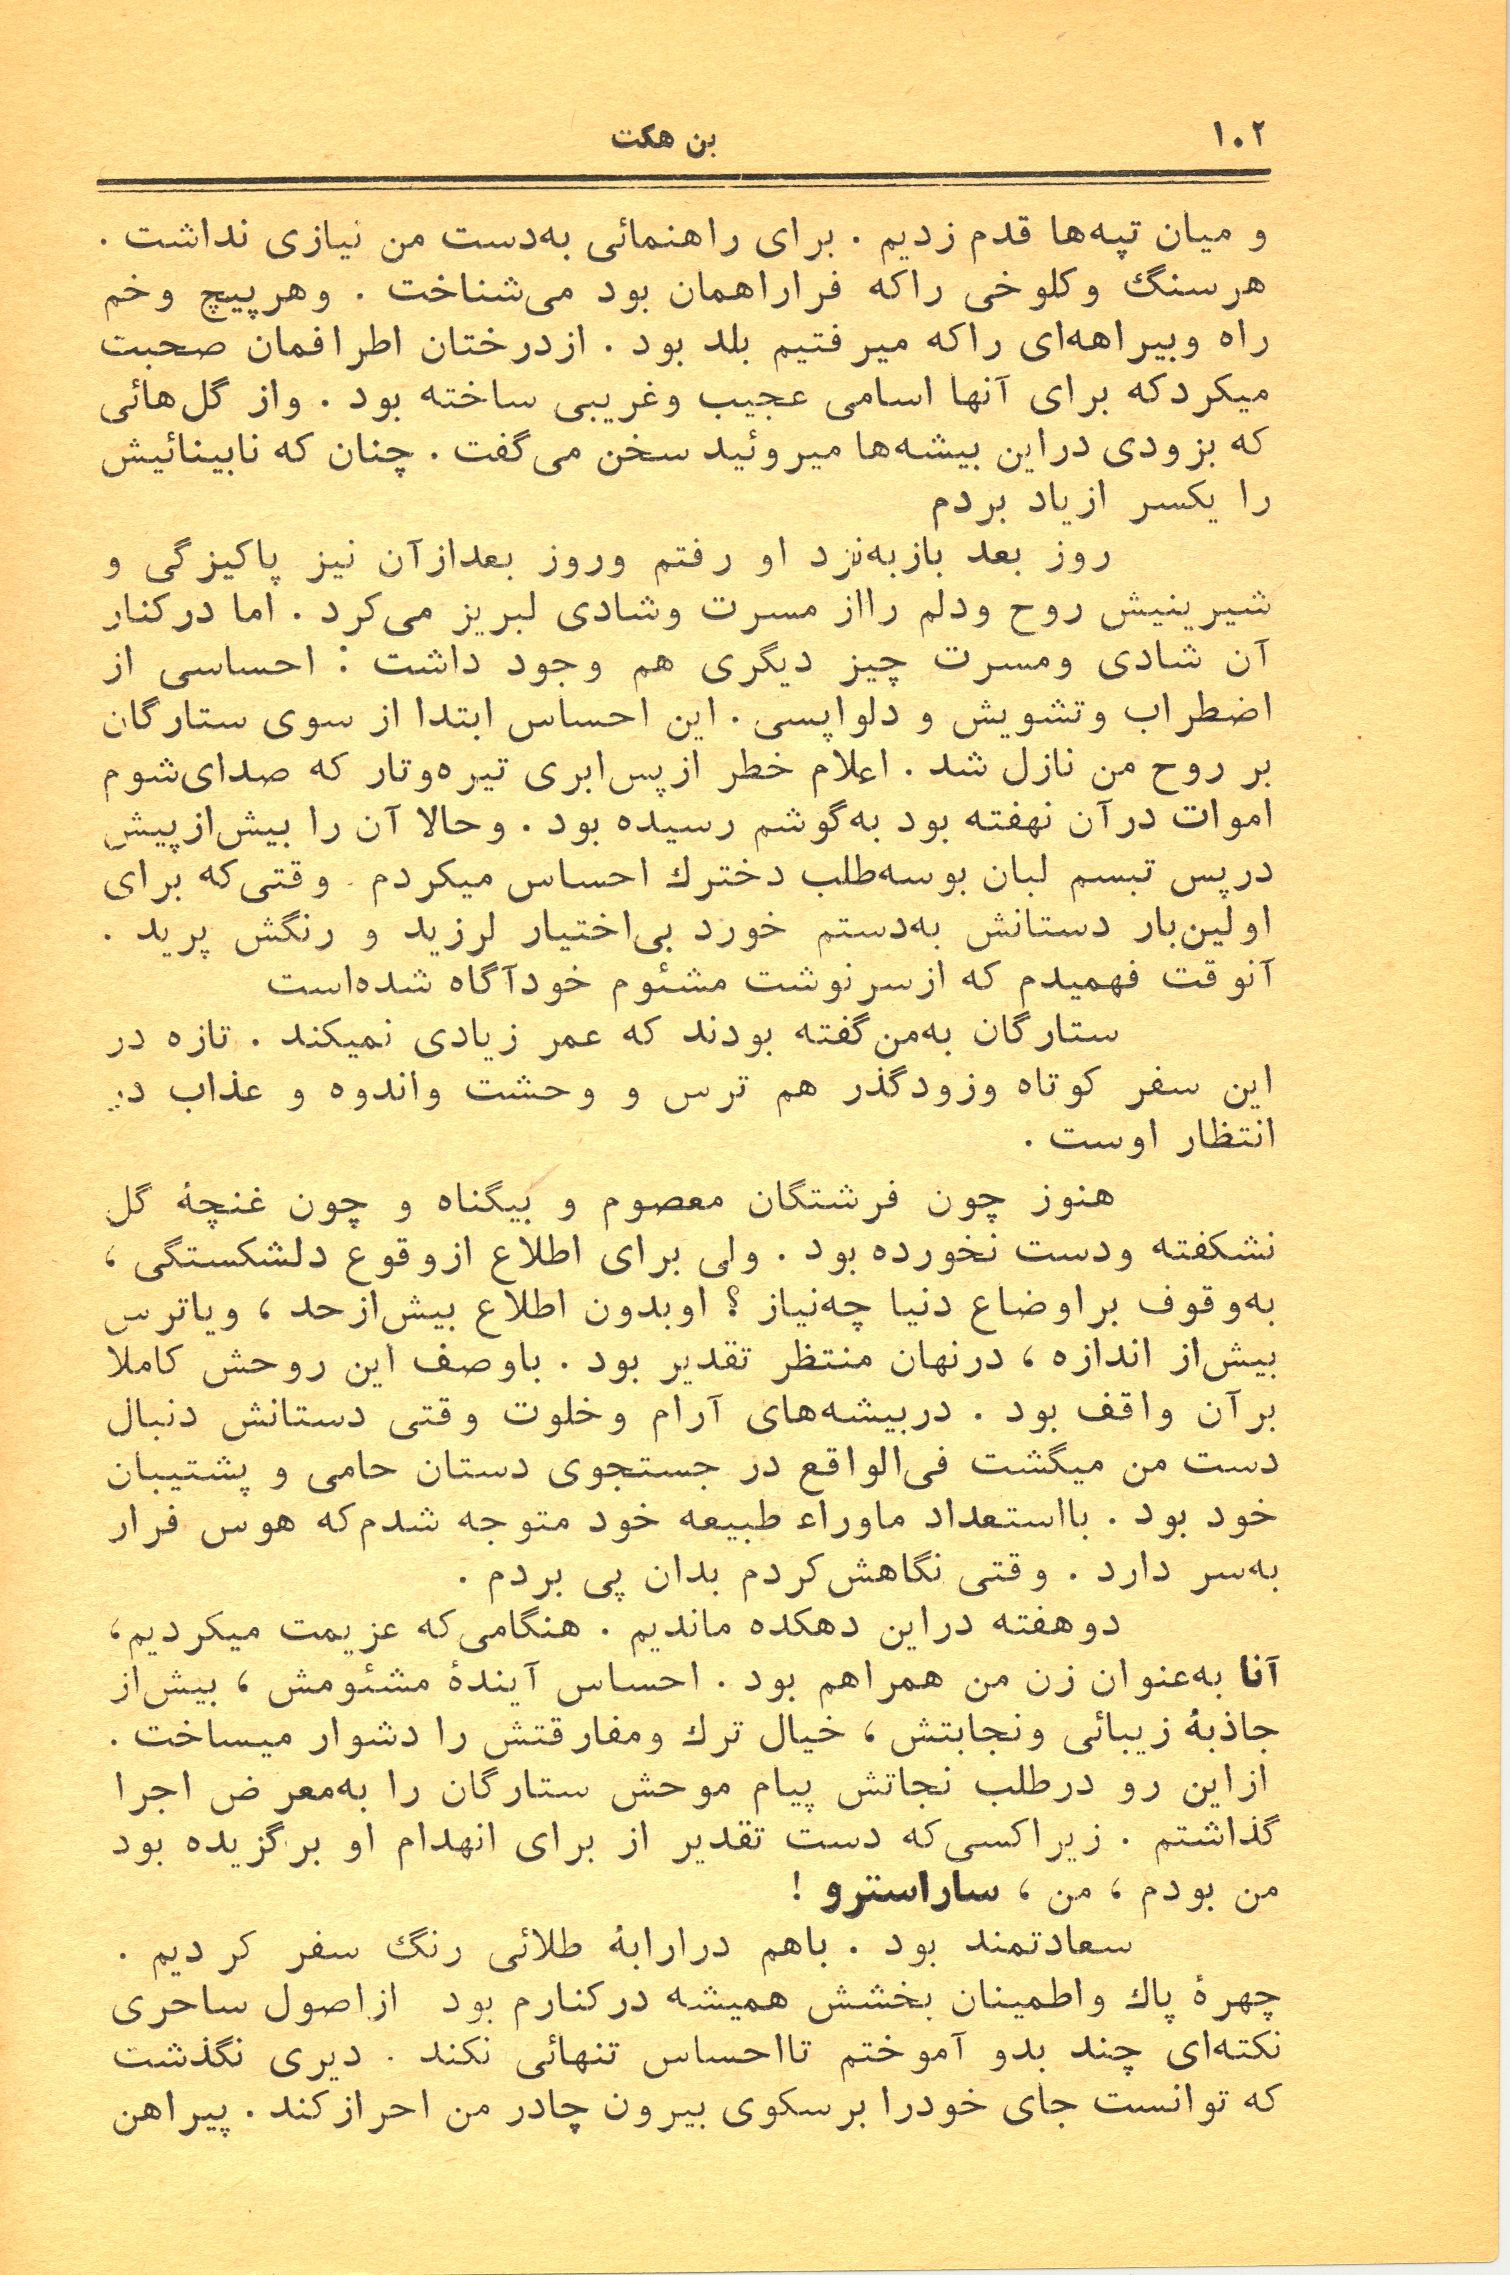 ۱۰۲
بن هکت
و میان تپه‌ها قدم زدیم . برای راهنمائی به‌دست من نیازی نداشت .
هرسنگ وکلوخی راکه فراراهمان بود می‌شناخت . وهرپیچ وخم
راه وبیراهه‌ای راکه میرفتیم بلد بود . ازدرختان اطرافمان صحبت
میکردکه برای آنها اسامی عجیب وغریبی ساخته بود . واز گل‌هائی
که بزودی دراین بیشه‌ها میروئید سخن می‌گفت . چنان که نابینائیش
را یکسر ازیاد بردم
روز بعد بازبه‌نزد او رفتم وروز بعدازآن نیز پاکیزگی و
شیرینیش روح ودلم رااز مسرت وشادی لبریز می‌کرد . اما درکنار
آن شادی ومسرت چیز دیگری هم وجود داشت : احساسی از
اضطراب وتشویش و دلواپسی . این احساس ابتدا از سوی ستارگان
بر روح من نازل شد . اعلام خطر ازپس‌ابری تیره‌وتار که صدای‌شوم
اموات درآن نهفته بود به‌گوشم رسیده بود . وحالا آن را بیش‌ازپیش
درپس تبسم لبان بوسه‌طلب دخترك احساس میکردم . وقتی‌که برای
اولین‌بار دستانش به‌دستم خورد بی‌اختیار لرزید و رنگش پرید .
آنوقت فهمیدم که ازسرنوشت مشئوم خودآگاه شده‌است
ستارگان به‌من‌گفته بودند که عمر زیادی نمیکند . تازه در
این سفر کوتاه وزودگذر هم ترس و وحشت واندوه و عذاب در
انتظار اوست .
هنوز چون فرشتگان معصوم و بیگناه و چون غنچۀ گل
نشکفته ودست نخورده بود . ولی برای اطلاع ازوقوع دلشکستگی ،
به‌وقوف براوضاع دنیا چه‌نیاز ؟ اوبدون اطلاع بیش‌ازحد ، ویاترس
بیش‌از اندازه ، درنهان منتظر تقدیر بود . باوصف این روحش کاملا
برآن واقف بود . دربیشه‌های آرام وخلوت وقتی دستانش دنبال
دست من میگشت فی‌الواقع در جستجوی دستان حامی و پشتیبان
خود بود . بااستعداد ماوراء طبیعه خود متوجه شدم‌که هوس فرار
به‌سر دارد . وقتی نگاهش‌کردم بدان پی بردم .
دوهفته دراین دهکده ماندیم . هنگامی‌که عزیمت میکردیم،
آنا به‌عنوان زن من همراهم بود . احساس آیندۀ مشئومش ، بیش‌از
جاذبۀ زیبائی ونجابتش ، خیال ترك ومفارقتش را دشوار میساخت .
ازاین رو درطلب نجاتش پیام موحش ستارگان را به‌معرض اجرا
گذاشتم . زیراکسی‌که دست تقدیر از برای انهدام او برگزیده بود
من بودم ، من ، ساراسترو !
سعادتمند بود . باهم درارابۀ طلائی رنگ سفر کردیم .
چهرۀ پاك واطمینان بخشش همیشه درکنارم بود ازاصول ساحری
نکته‌ای چند بدو آموختم تااحساس تنهائی نکند . دیری نگذشت
که توانست جای خودرا برسکوی بیرون چادر من احرازکند . پیراهن